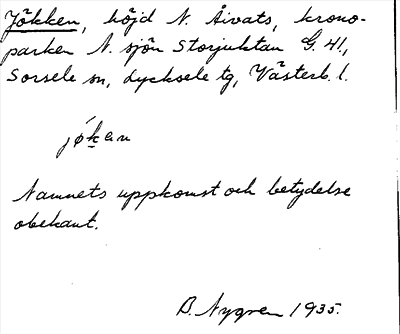 Jökken, höjd N. Åivats, krono-
parken N. sjön Storjuktan G. 41,
Sorsele sn, Lycksele tg, Västerb. l.
jøken
Namnets uppkomst och betydelse
obekant.
B. Nygren 1935.